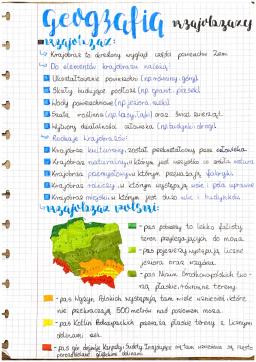 Geografia krajobrazy
krajobraz:
Krajobraz to określony wygląd części powierzchni Ziemi
Do elementów krajobrazu należą:
Ukształtowanie powierzchni (np. równiny, góry)
Skały budujące podłoże (np. granit, piasek)
Wody powierzchniowe (np. jeziora, rzeki)
Szata roślinna (np. lasy, łąki) oraz świat zwierząt
Wytwory działalności człowieka (np. budynki, drogi)
Rodzaje krajobrazów:
Krajobraz kulturowy, został przekształcony przez człowieka
Krajobraz naturalny, w którym jest wszystko co zrobiła natura
Krajobraz przemysłowy, w którym przeważają fabryki
Krajobraz rolniczy, w którym występują wsie i pola uprawne
Krajobraz miejski, w którym jest dużo ulic i budynków
krajobraz Polski:
- pas pobrzeży to lekko falisty
teren przylegający do morza.
- pas pojezierzy występują liczne
jeziora oraz wzgórza.
- pas Nizin Środkowopolskich tworzą
płaskie, równinne tereny.
- pas Wyżyn Polskich występują tam małe wzniesienia, które
nie przekraczają 500 metrów nad poziomem morza.
- pas Kotlin Podkarpackich przeważa płaskie tereny z licznymi
dolinami rzek.
- pas gór dominuje Karpaty i Sudety, znajdujące się tam wzniesienia są często
poprzedzielane głębokimi dolinami.